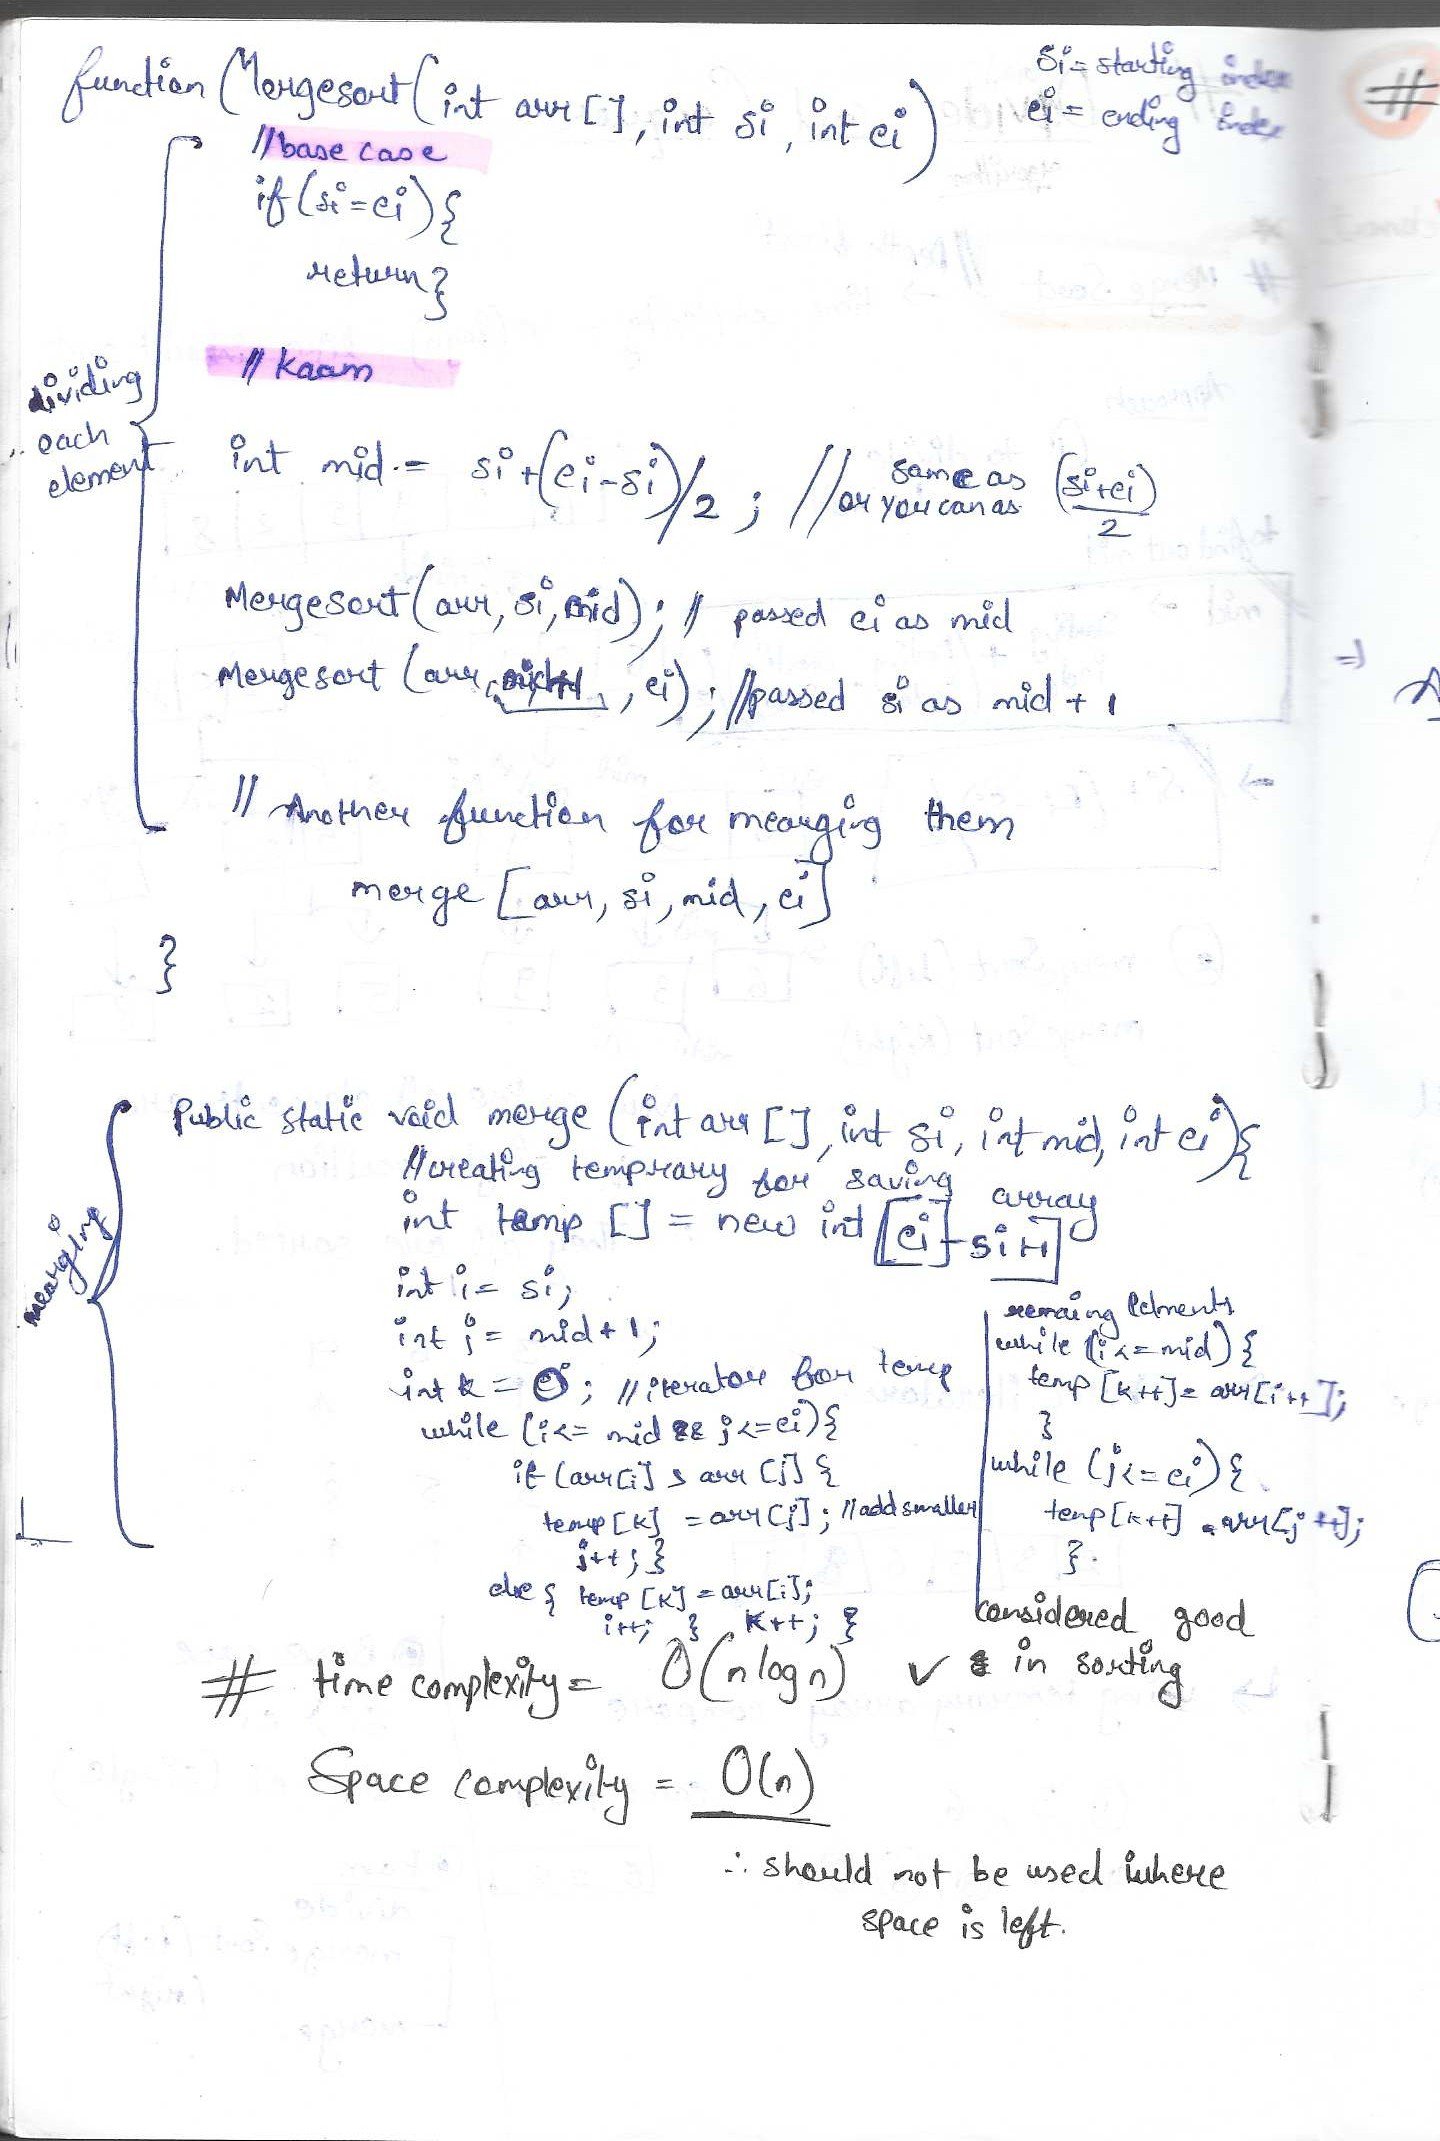 function (Mergesort(int arr [], int si, int ei)
si = starting index
ei = ending index
//base case
if(si=ei){
return}
dividing
each
element
// Kaam
int mid = si+(ei-si)/2 ; // same as (si+ei)/2
or you can as
Mergesort(arr, si, mid); // passed ei as mid
Mergesort (arr, mid+1, ei); //passed si as mid + 1
// Another function for mearging them
merge [arr, si, mid, ei]
}
mearging
Public static void merge (int arr [], int si, int mid, int ei){
//creating temprary for saving array
int temp [] = new int [ei - si+1]
int i = si;
int j = mid+1;
int k = 0; //iterator for temp
while (i<= mid && j<=ei){
if (arr[i] > arr [j] {
temp [k] = arr[j]; //add smaller
j++; }
else { temp [k] = arr[i];
i++; } k++; }
remaing
while (i<=mid) {
temp [k++] = arr[i++];
}
while (j<=ei) {
temp[k++] = arr[j++];
}.
# time complexity = O(n log n) ✓ considered good
in sorting
Space complexity = O(n)
∴ should not be used where
space is left.
#